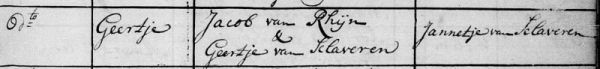 6 dto
Geertje
Jacob van Rhijn
&
Geertje van Klaveren
Jannetje van Klaveren